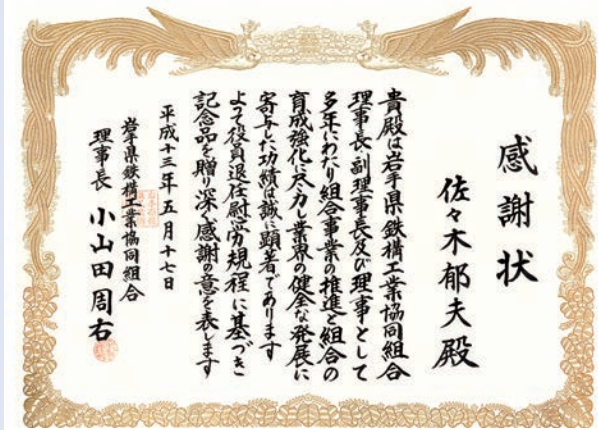 感謝状
佐々木郁夫殿
貴殿は岩手県鉄構工業協同組合
理事長副理事長及び理事として
多年にわたり組合事業の推進と組合の
育成強化に尽力し業界の健全な発展に
寄与した功績は誠に顕著であります
よって役員退任慰労規程に基づき
記念品を贈り深く感謝の意を表します
平成十三年五月十七日
岩手県鉄構工業協同組合
理事長 小山田周右